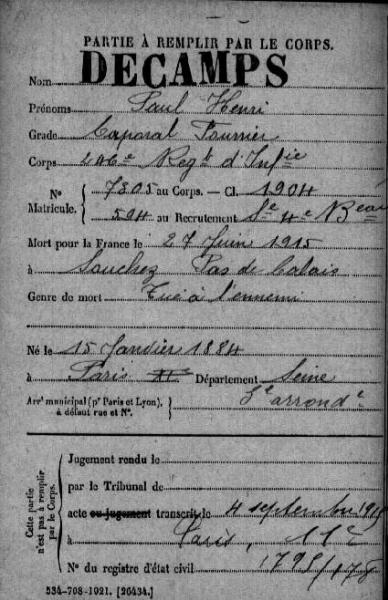 PARTIE À REMPLIR PAR LE CORPS.
Nom DECAMPS
Prénoms Paul Henri
Grade Caporal Fourrier
Corps 246e Regt d'Infie
No 7305 au Corps. — Cl. 1904
Matricule. 594 au Recrutement Se 4e Beau
Mort pour la France le 27 Juin 1915
à Souchez Pas de Calais
Genre de mort Tué à l'ennemi
Né le 15 Janvier 1884
à Paris Département Seine
Arrt municipal (pr Paris et Lyon), à défaut rue et No. arrondt
Cette partie n'est pas à remplir par le Corps.
Jugement rendu le
par le Tribunal de
acte ou jugement transcrit le 4 septembre
à Paris, 11e
No du registre d'état civil
534-708-1021. [26434.]